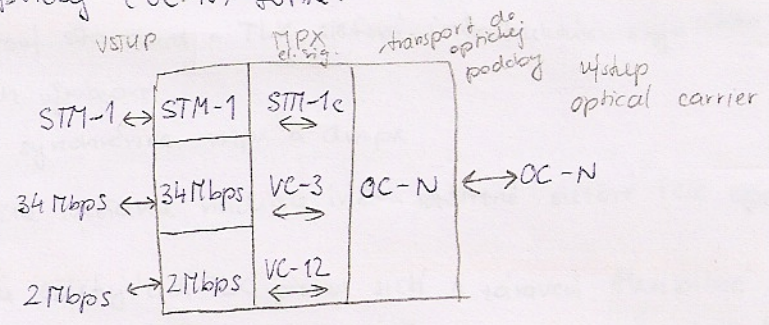 VSTUP
MPX
el. sig.
transport do
optickej
podoby
výstup
optical carrier
STM-1 ↔ STM-1 STM-1e ↔
34 Mbps ↔ 34 Mbps VC-3 ↔ OC-N ↔ OC-N
2 Mbps ↔ 2 Mbps VC-12 ↔